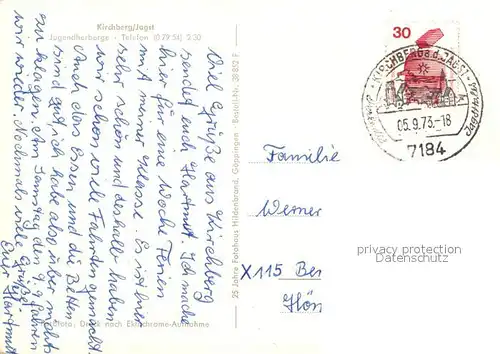 Kirchberg/Jagst
Jugendherberge - Telefon (0 79 54) 2 30
Viel Grüße aus Kirchberg
sendet euch Hartmut. Ich mache
hier für eine Woche Ferien
mit meiner Klasse. Es ist hier
sehr schön und deshalb haben
wir schon viele Fahrten gemacht.
Auch das Essen und die Betten
sind gut ich habe also über nichts
zu klagen. Am Samstag den 9. fahren
wir wieder. Nochmals viele Grüße!
Euer Hartmut
Foto: Druck nach Ektachrome-Aufnahme
25 Jahre Fotohaus Hildenbrand, Göppingen - Bestell-Nr. 28 852 F
30
KIRCHBERG a.d. JAGST
05.9.73.-18
7184
Familie
Werner
X115 Ber
Hön
privacy protection
DATENSCHUTZ